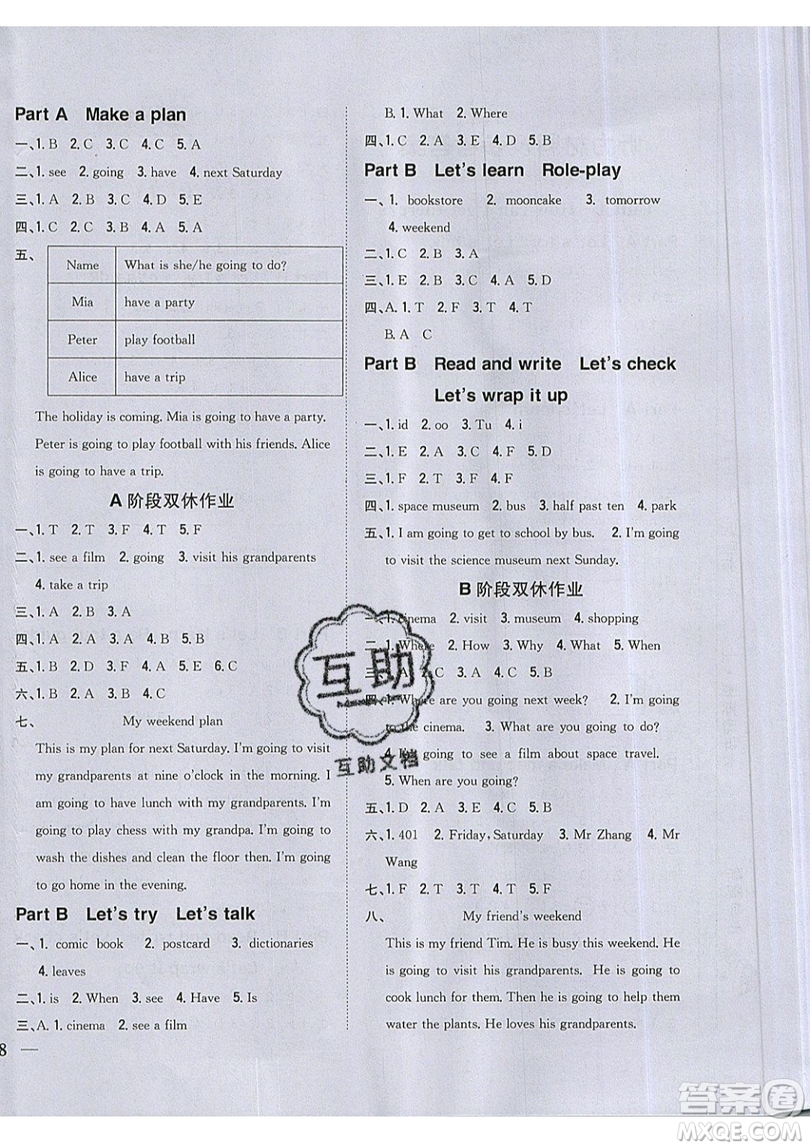 Part A Make a plan
一、1. B 2. C 3. C 4. C 5. A
二、1. see 2. going 3. have 4. next Saturday
三、1. A 2. B 3. C 4. D 5. E
四、1. C 2. C 3. C 4. A 5. A
五、
Name What is she/he going to do?
Mia have a party
Peter play football
Alice have a trip
The holiday is coming. Mia is going to have a party.
Peter is going to play football with his friends. Alice
is going to have a trip.
A 阶段双休作业
一、1. T 2. T 3. F 4. T 5. F
二、1. see a film 2. going 3. visit his grandparents
4. take a trip
三、1. A 2. B 3. A
四、1. A 2. B 3. B 4. A 5. A
五、1. A 2. B 3. A 4. B 5. B 6. C
六、1. B 2. B 3. A 4. C
七、 My weekend plan
This is my plan for next Saturday. I'm going to visit
my grandparents at nine o'clock in the morning. I
am going to have lunch with my grandparents. I am
going to play chess with my grandpa. I'm going to
wash the dishes and clean the floor then. I'm going
to go home in the evening.
Part B Let's try Let's talk
一、1. comic book 2. postcard 3. dictionaries
4. leaves
二、1. is 2. When 3. see 4. Have 5. Is
三、A. 1. cinema 2. see a film
8 —
B. 1. What 2. Where
四、1. C 2. A 3. E 4. D 5. B
Part B Let's learn Role-play
一、1. bookstore 2. mooncake 3. tomorrow
4. weekend
二、1. C 2. B 3. A
三、1. E 2. C 3. B 4. A 5. D
四、A. 1. T 2. F 3. T 4. T
B. A C
Part B Read and write Let's check
Let's wrap it up
一、1. id 2. oo 3. Tu 4. i
二、1. C 2. B 3. A 4. E 5. D
三、1. F 2. T 3. T 4. F 5. F
四、1. space museum 2. bus 3. half past ten 4. park
五、1. I am going to get to school by bus. 2. I'm going
to visit the science museum next Sunday.
B 阶段双休作业
一、1. cinema 2. visit 3. museum 4. shopping
二、1. Where 2. How 3. Why 4. What 5. When
三、1. A 2. C 3. C 4. B 5. A
四、1. Where are you going next week? 2. I'm going
to the cinema. 3. What are you going to do?
4. I'm going to see a film about space travel.
5. When are you going?
五、1. D 2. A 3. E 4. C 5. B
六、1. 401 2. Friday, Saturday 3. Mr Zhang 4. Mr
Wang
七、1. F 2. T 3. F 4. T 5. F
八、 My friend's weekend
This is my friend Tim. He is busy this weekend. He
is going to visit his grandparents. He is going to
cook lunch for them. Then he is going to help them
water the plants. He loves his grandparents.
互助
互助文档
答案圈
MXQE.COM